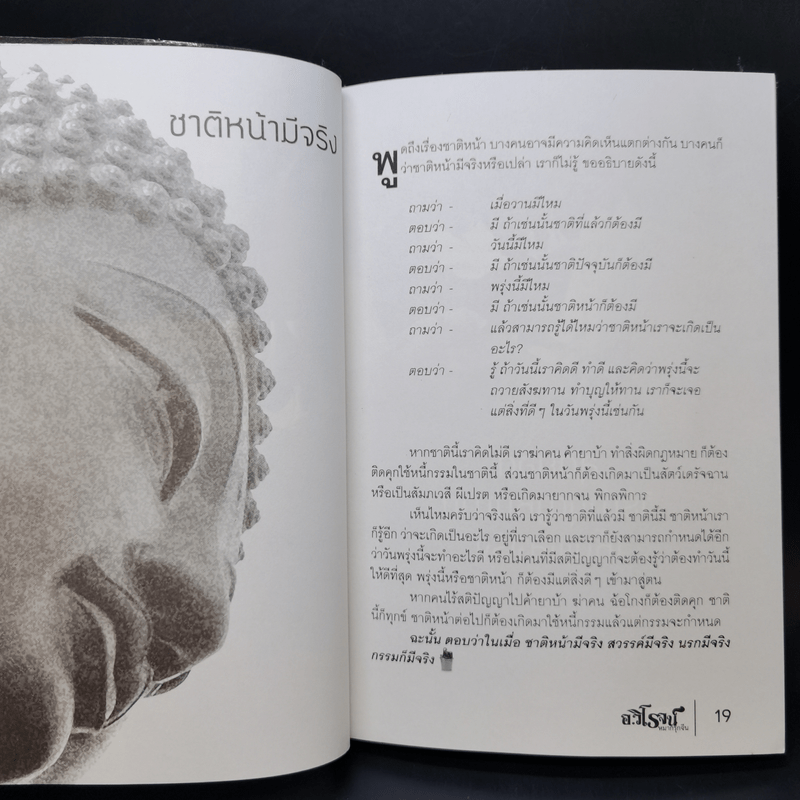 ชาติหน้ามีจริง
พูดถึงเรื่องชาติหน้า บางคนอาจมีความคิดเห็นแตกต่างกัน บางคนก็
ว่าชาติหน้ามีจริงหรือเปล่า เราก็ไม่รู้ ขออธิบายดังนี้
ถามว่า - เมื่อวานมีไหม
ตอบว่า - มี ถ้าเช่นนั้นชาติที่แล้วก็ต้องมี
ถามว่า - วันนี้มีไหม
ตอบว่า - มี ถ้าเช่นนั้นชาติปัจจุบันก็ต้องมี
ถามว่า - พรุ่งนี้มีไหม
ตอบว่า - มี ถ้าเช่นนั้นชาติหน้าก็ต้องมี
ถามว่า - แล้วสามารถรู้ได้ไหมว่าชาติหน้าเราจะเกิดเป็น
อะไร?
ตอบว่า - รู้ ถ้าวันนี้เราคิดดี ทำดี และคิดว่าพรุ่งนี้จะ
ถวายสังฆทาน ทำบุญให้ทาน เราก็จะเจอ
แต่สิ่งที่ดีๆ ในวันพรุ่งนี้เช่นกัน
หากชาตินี้เราคิดไม่ดี เราฆ่าคน ค้ายาบ้า ทำสิ่งผิดกฎหมาย ก็ต้อง
ติดคุกใช้หนี้กรรมในชาตินี้ ส่วนชาติหน้าก็ต้องเกิดมาเป็นสัตว์เดรัจฉาน
หรือเป็นสัมภเวสี ผีเปรต หรือเกิดมายากจน พิกลพิการ
เห็นไหมครับว่าจริงแล้ว เรารู้ว่าชาติที่แล้วมี ชาตินี้มี ชาติหน้าเรา
ก็รู้อีก ว่าจะเกิดเป็นอะไร อยู่ที่เราเลือก และเราก็ยังสามารถกำหนดได้อีก
ว่าวันพรุ่งนี้จะทำอะไรดี หรือไม่คนที่มีสติปัญญาก็จะต้องรู้ว่าต้องทำวันนี้
ให้ดีที่สุด พรุ่งนี้หรือชาติหน้า ก็ต้องมีแต่สิ่งดีๆ เข้ามาสู่ตน
หากคนไร้สติปัญญาไปค้ายาบ้า ฆ่าคน ฉ้อโกงก็ต้องติดคุก ชาติ
นี้ก็ทุกข์ ชาติหน้าต่อไปก็ต้องเกิดมาใช้หนี้กรรมแล้วแต่กรรมจะกำหนด
ฉะนั้น ตอบว่าในเมื่อ ชาติหน้ามีจริง สวรรค์มีจริง นรกมีจริง
กรรมก็มีจริง
อ.วิโรจน์
หมากรุกจีน
19